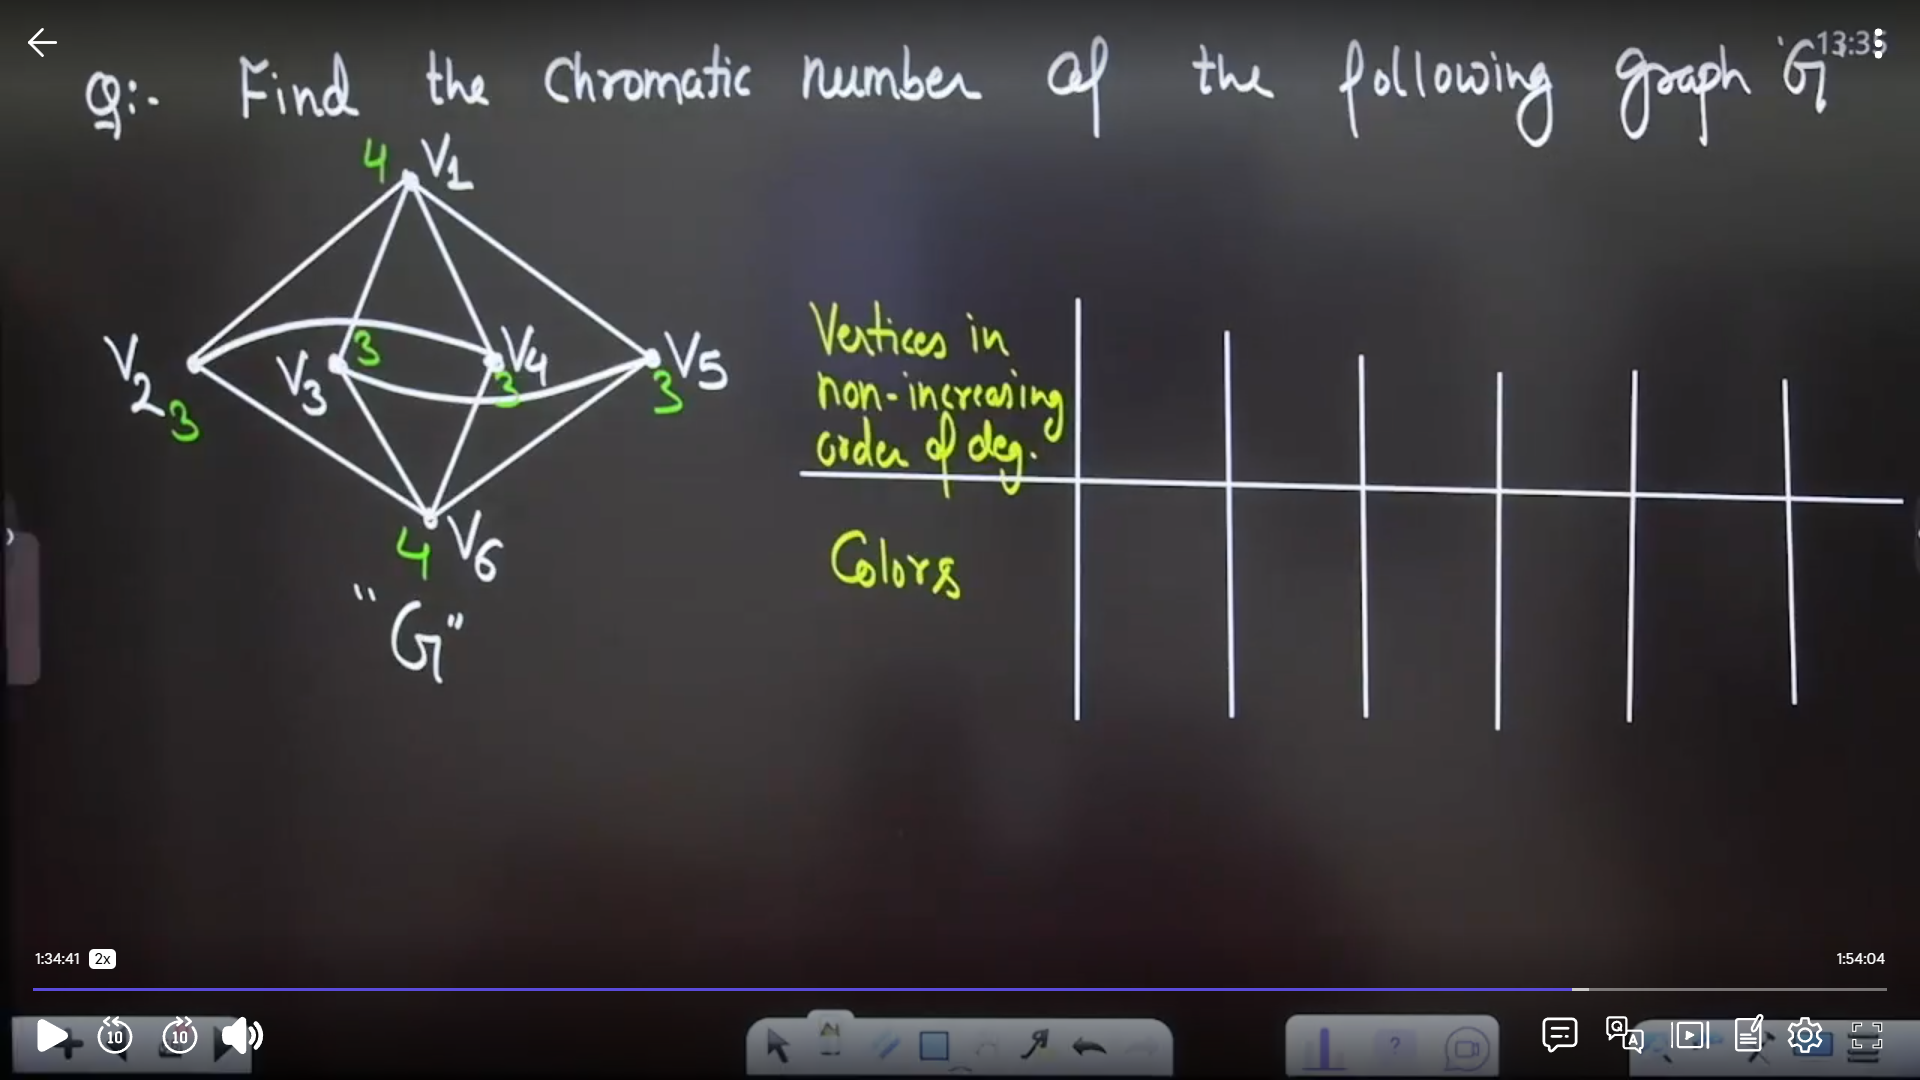 13:35
Q:- Find the Chromatic number of the following graph 'G'
4 V1
V2 3
V3 3
V4 3
V5 3
4 V6
"G"
Vertices in
non-increasing
order of deg.
Colors
1:34:41 2x
1:54:04
10 10